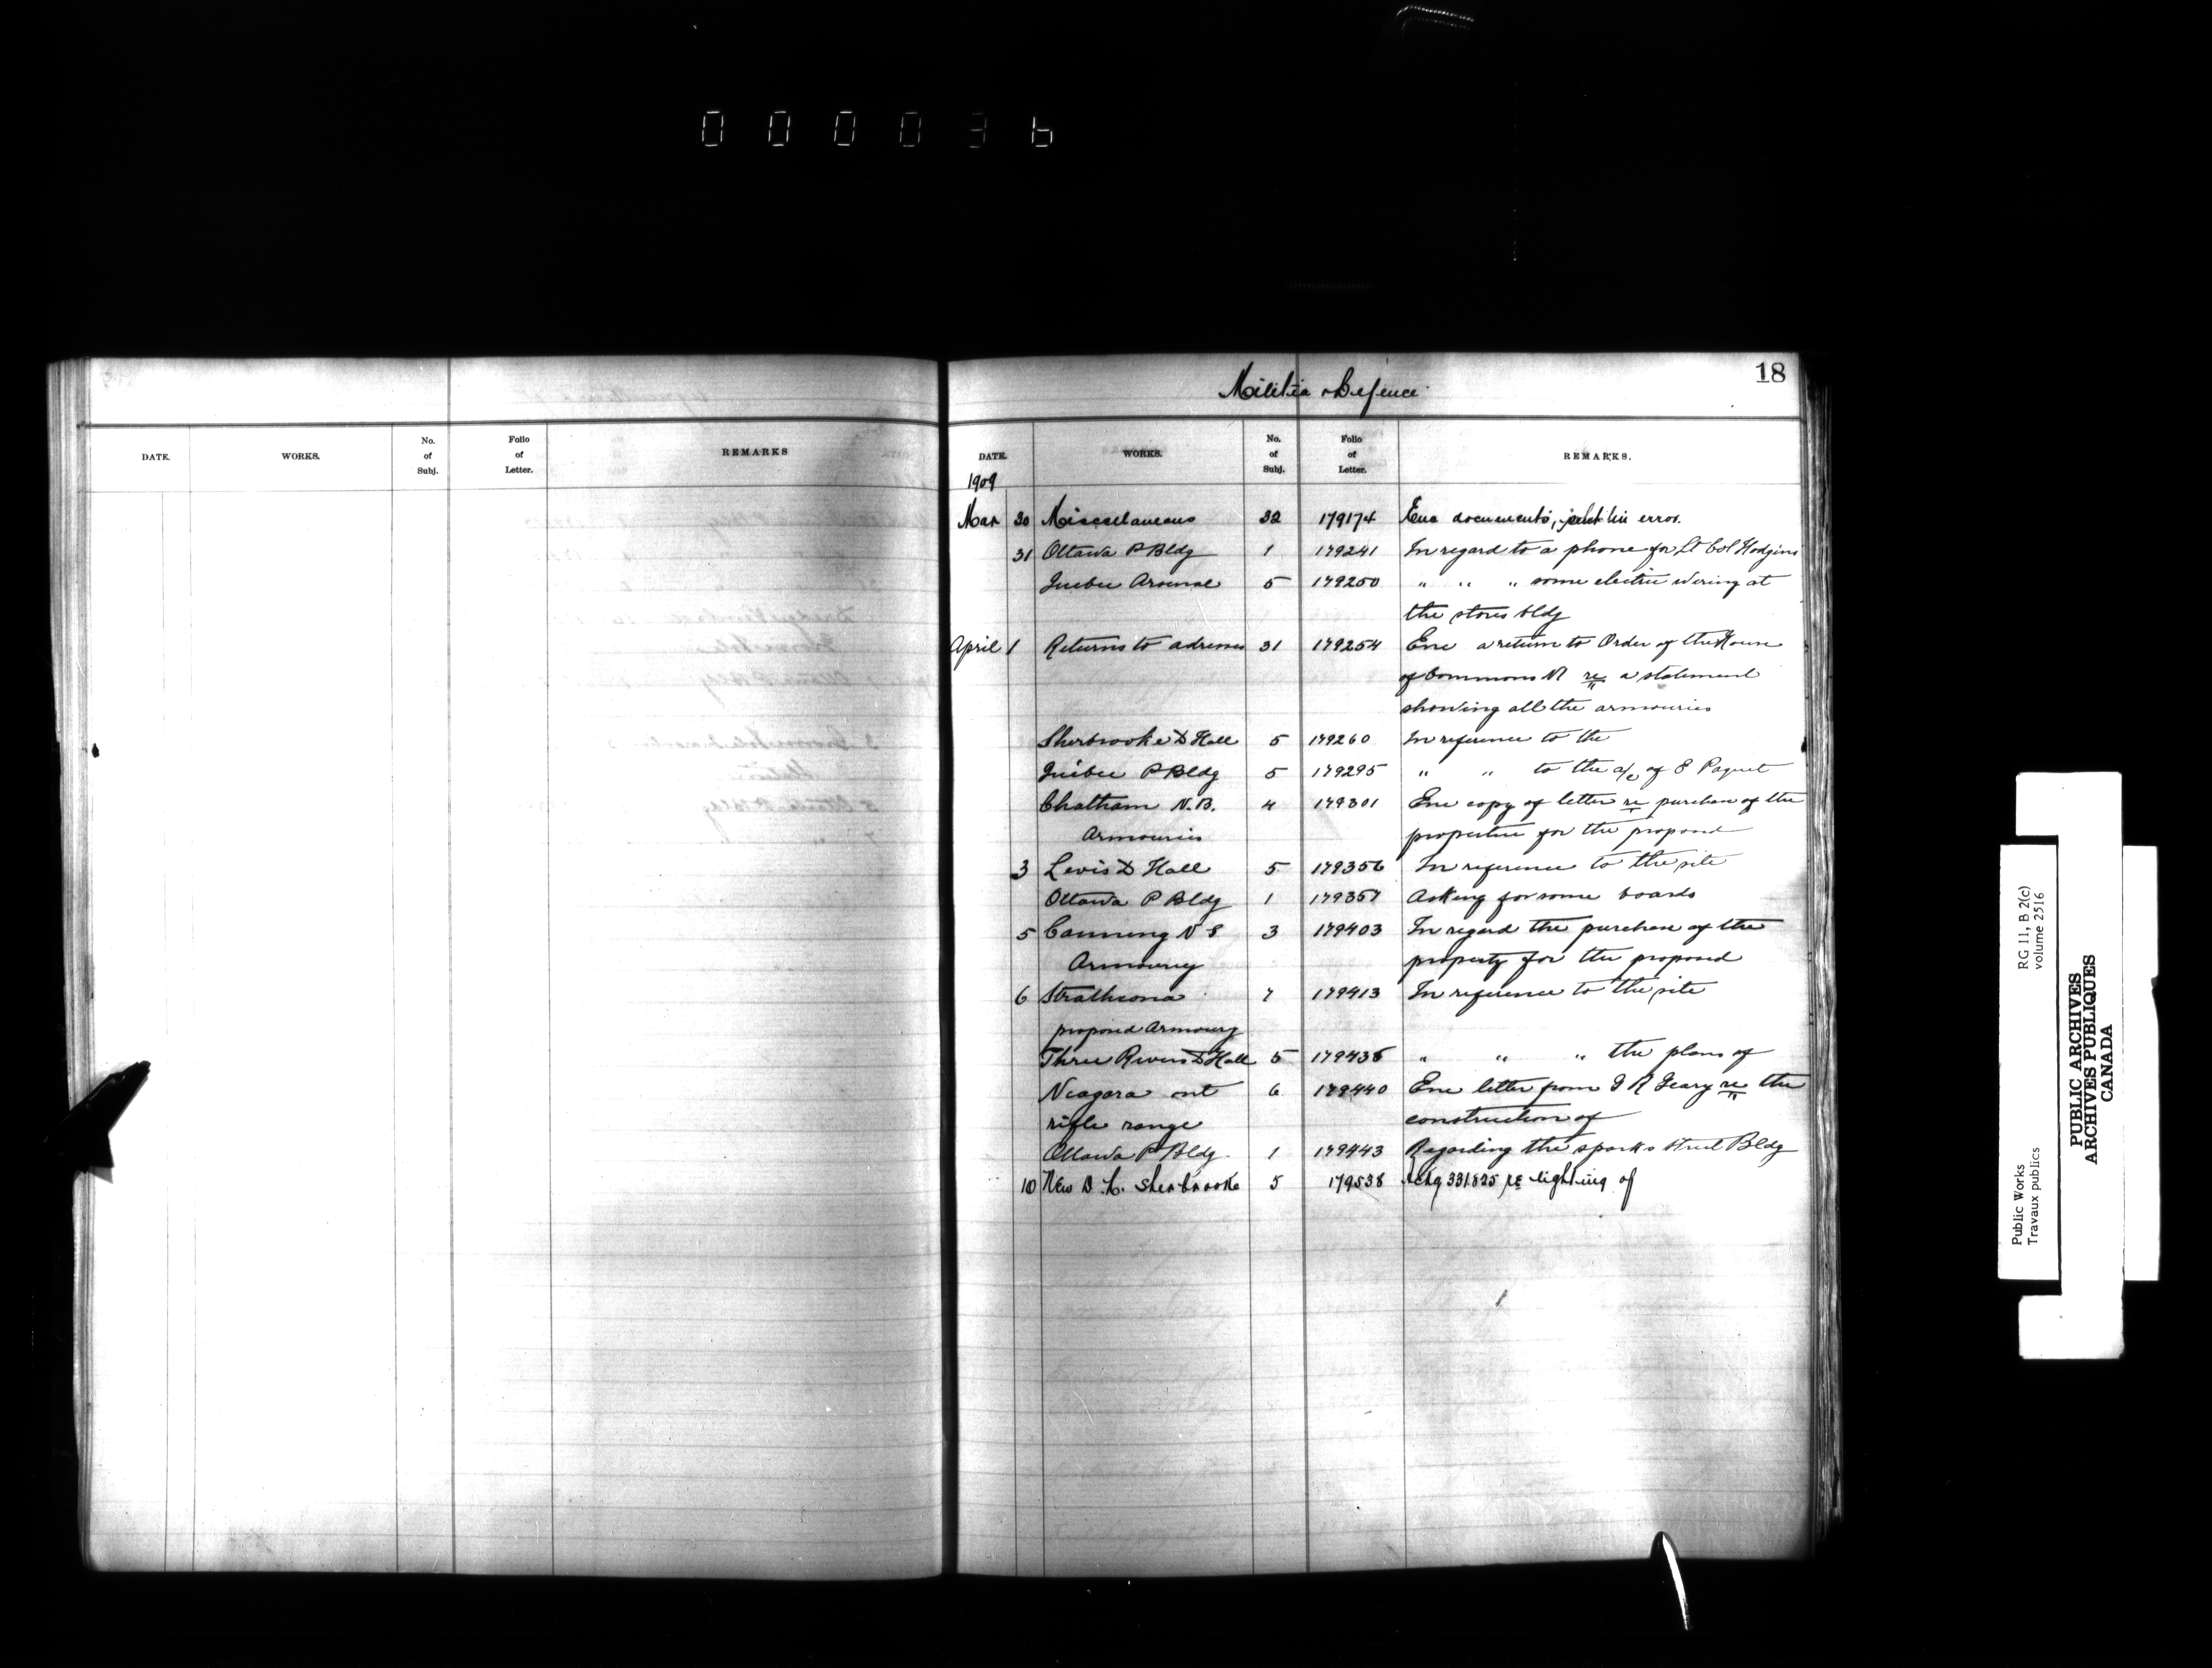 000036
18
Militia & Defence
DATE. WORKS. No. of Subj. Folio of Letter. REMARKS
DATE. WORKS. No. of Subj. Folio of Letter. REMARKS.
1909
Mar 30 Miscellaneous 32 179174 Enc documents, sent in error.
31 Ottawa P Bldg 1 179241 In regard to a phone for Lt Col Hodgins
Quebec Arsenal 5 179250 " " " some electric wiring at
the stores bldg
April 1 Returns to adresses 31 179254 Enc a return to Order of the House
of Commons re a statement
showing all the armouries
Sherbrooke D Hall 5 179260 In reference to the
Quebec P Bldg 5 179295 " " to the a/c of E Paquet
Chatham N.B. 4 179301 Enc copy of letter re purchase of the
Armouries properties for the proposed
3 Levis D Hall 5 179356 In reference to the site
Ottawa P Bldg 1 179357 Asking for some boards
5 Canning N S 3 179403 In regard the purchase of the
Armoury property for the proposed
6 Strathcona 7 179413 In reference to the site
proposed Armoury
Three Rivers D Hall 5 179435 " " " the plans of
Niagara ont 6 179440 Enc letter from G R Geary re the
rifle range construction of
Ottawa P Bldg. 1 179443 Regarding the sparks street Bldg
10 New D.h. Sherbrooke 5 179538 Ackg 331825 re lighting of
Public Works
Travaux publics
RG 11, B 2(c)
volume 2516
PUBLIC ARCHIVES
ARCHIVES PUBLIQUES
CANADA